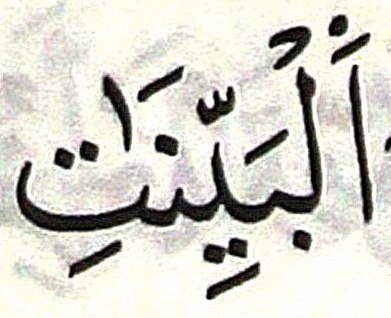 اَلْبَيِّنَٰتِ